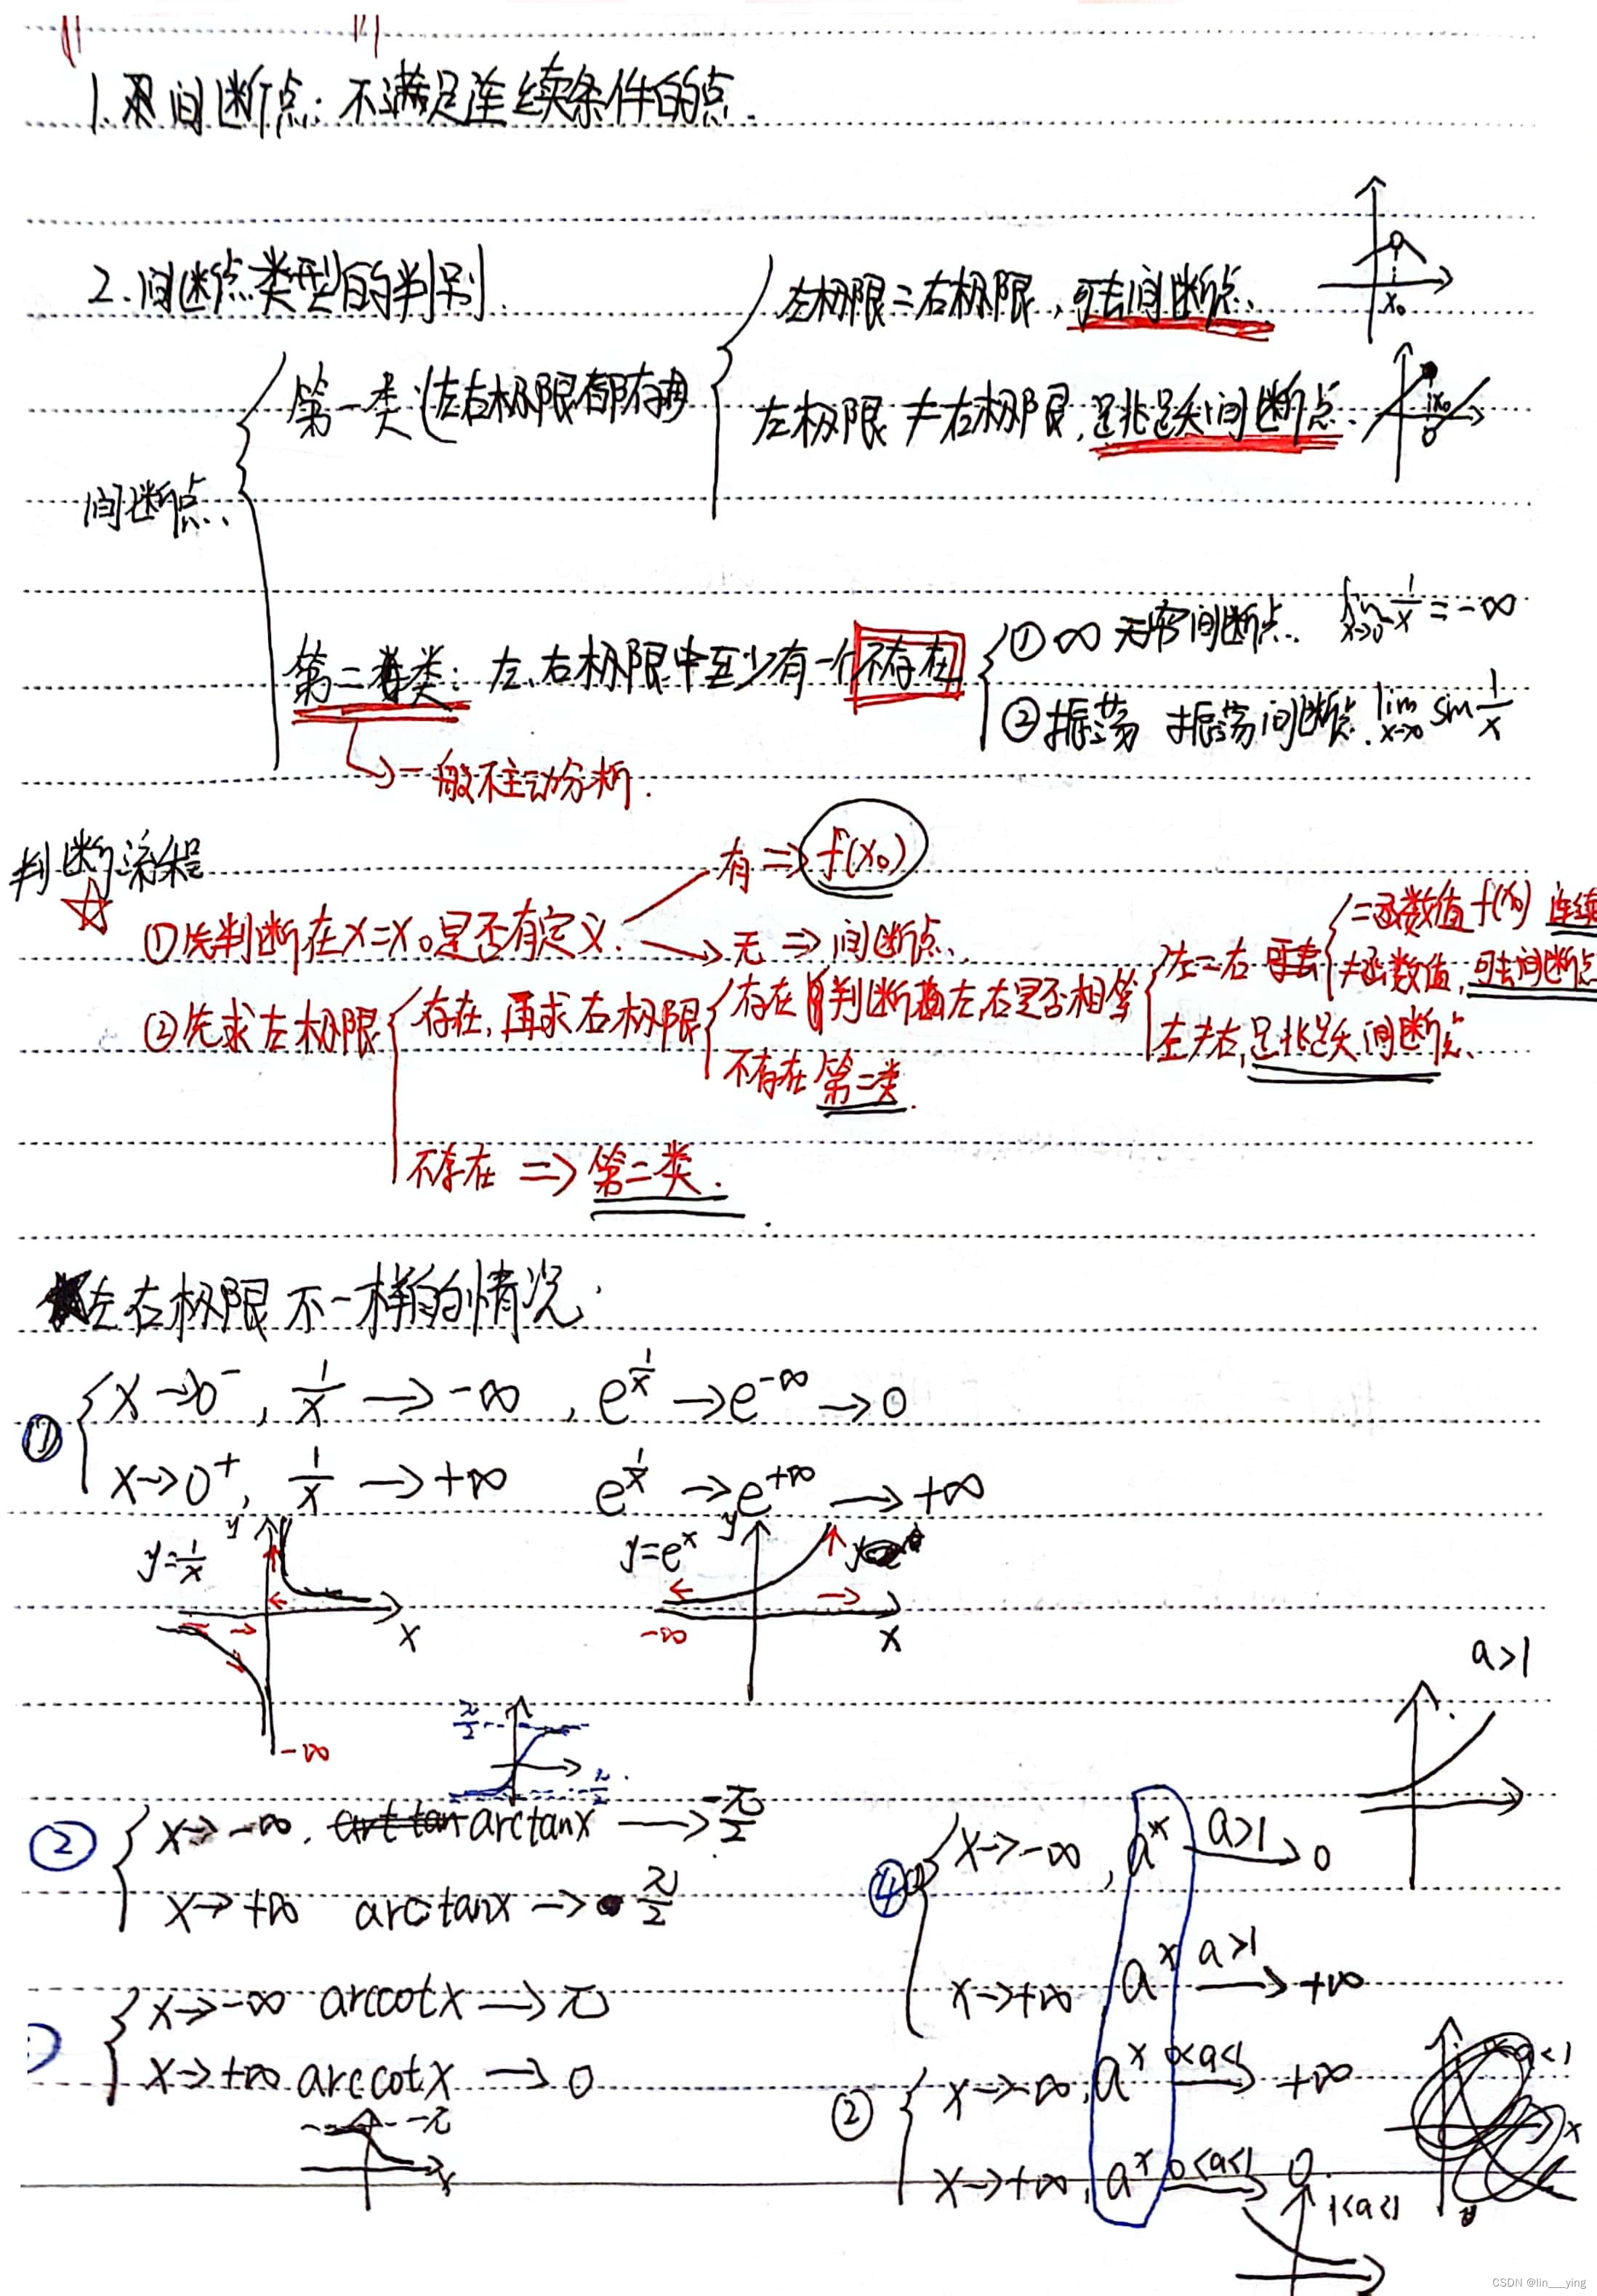 1. 间断点：不满足连续条件的点.
2. 间断点类型的判别.
间断点
第一类（左右极限都存在）
左极限=右极限，可去间断点.
x₀
左极限≠右极限，是跳跃间断点.
x₀
第二类：左、右极限中至少有一个不存在
① ∞ 无穷间断点. lim x→0⁻ 1/x = -∞
② 振荡 振荡间断点. lim x→0 sin 1/x
→一般不主动分析.
判断流程
①先判断在x=x₀是否有定义.
有 ⇒ f(x₀)
无 ⇒ 间断点.
②先求左极限
存在，再求右极限
存在 判断左,右是否相等
左=右 可去
=函数值 f(x₀) 连续
≠函数值，可去间断点
左≠右，是跳跃间断点.
不存在 第二类.
不存在 ⇒ 第二类.
左右极限不一样的情况:
① x→0⁻, 1/x → -∞, e^(1/x) → e^(-∞) → 0
x→0⁺, 1/x → +∞ e^(1/x) → e^(+∞) → +∞
y=1/x y x -∞
y=e^x y x -∞
π/2 -π/2
② x→-∞. arctanx → -π/2
x→+∞ arctanx → π/2
x→-∞ arccotx → π
x→+∞ arccotx → 0
π x
a>1
④ x→-∞, a^x a>1 → 0
x→+∞ a^x a>1 → +∞
② x→-∞, a^x 0<a<1 → +∞
x→+∞, a^x 0<a<1 → 0
1<a<1
x
CSDN @lin___ying